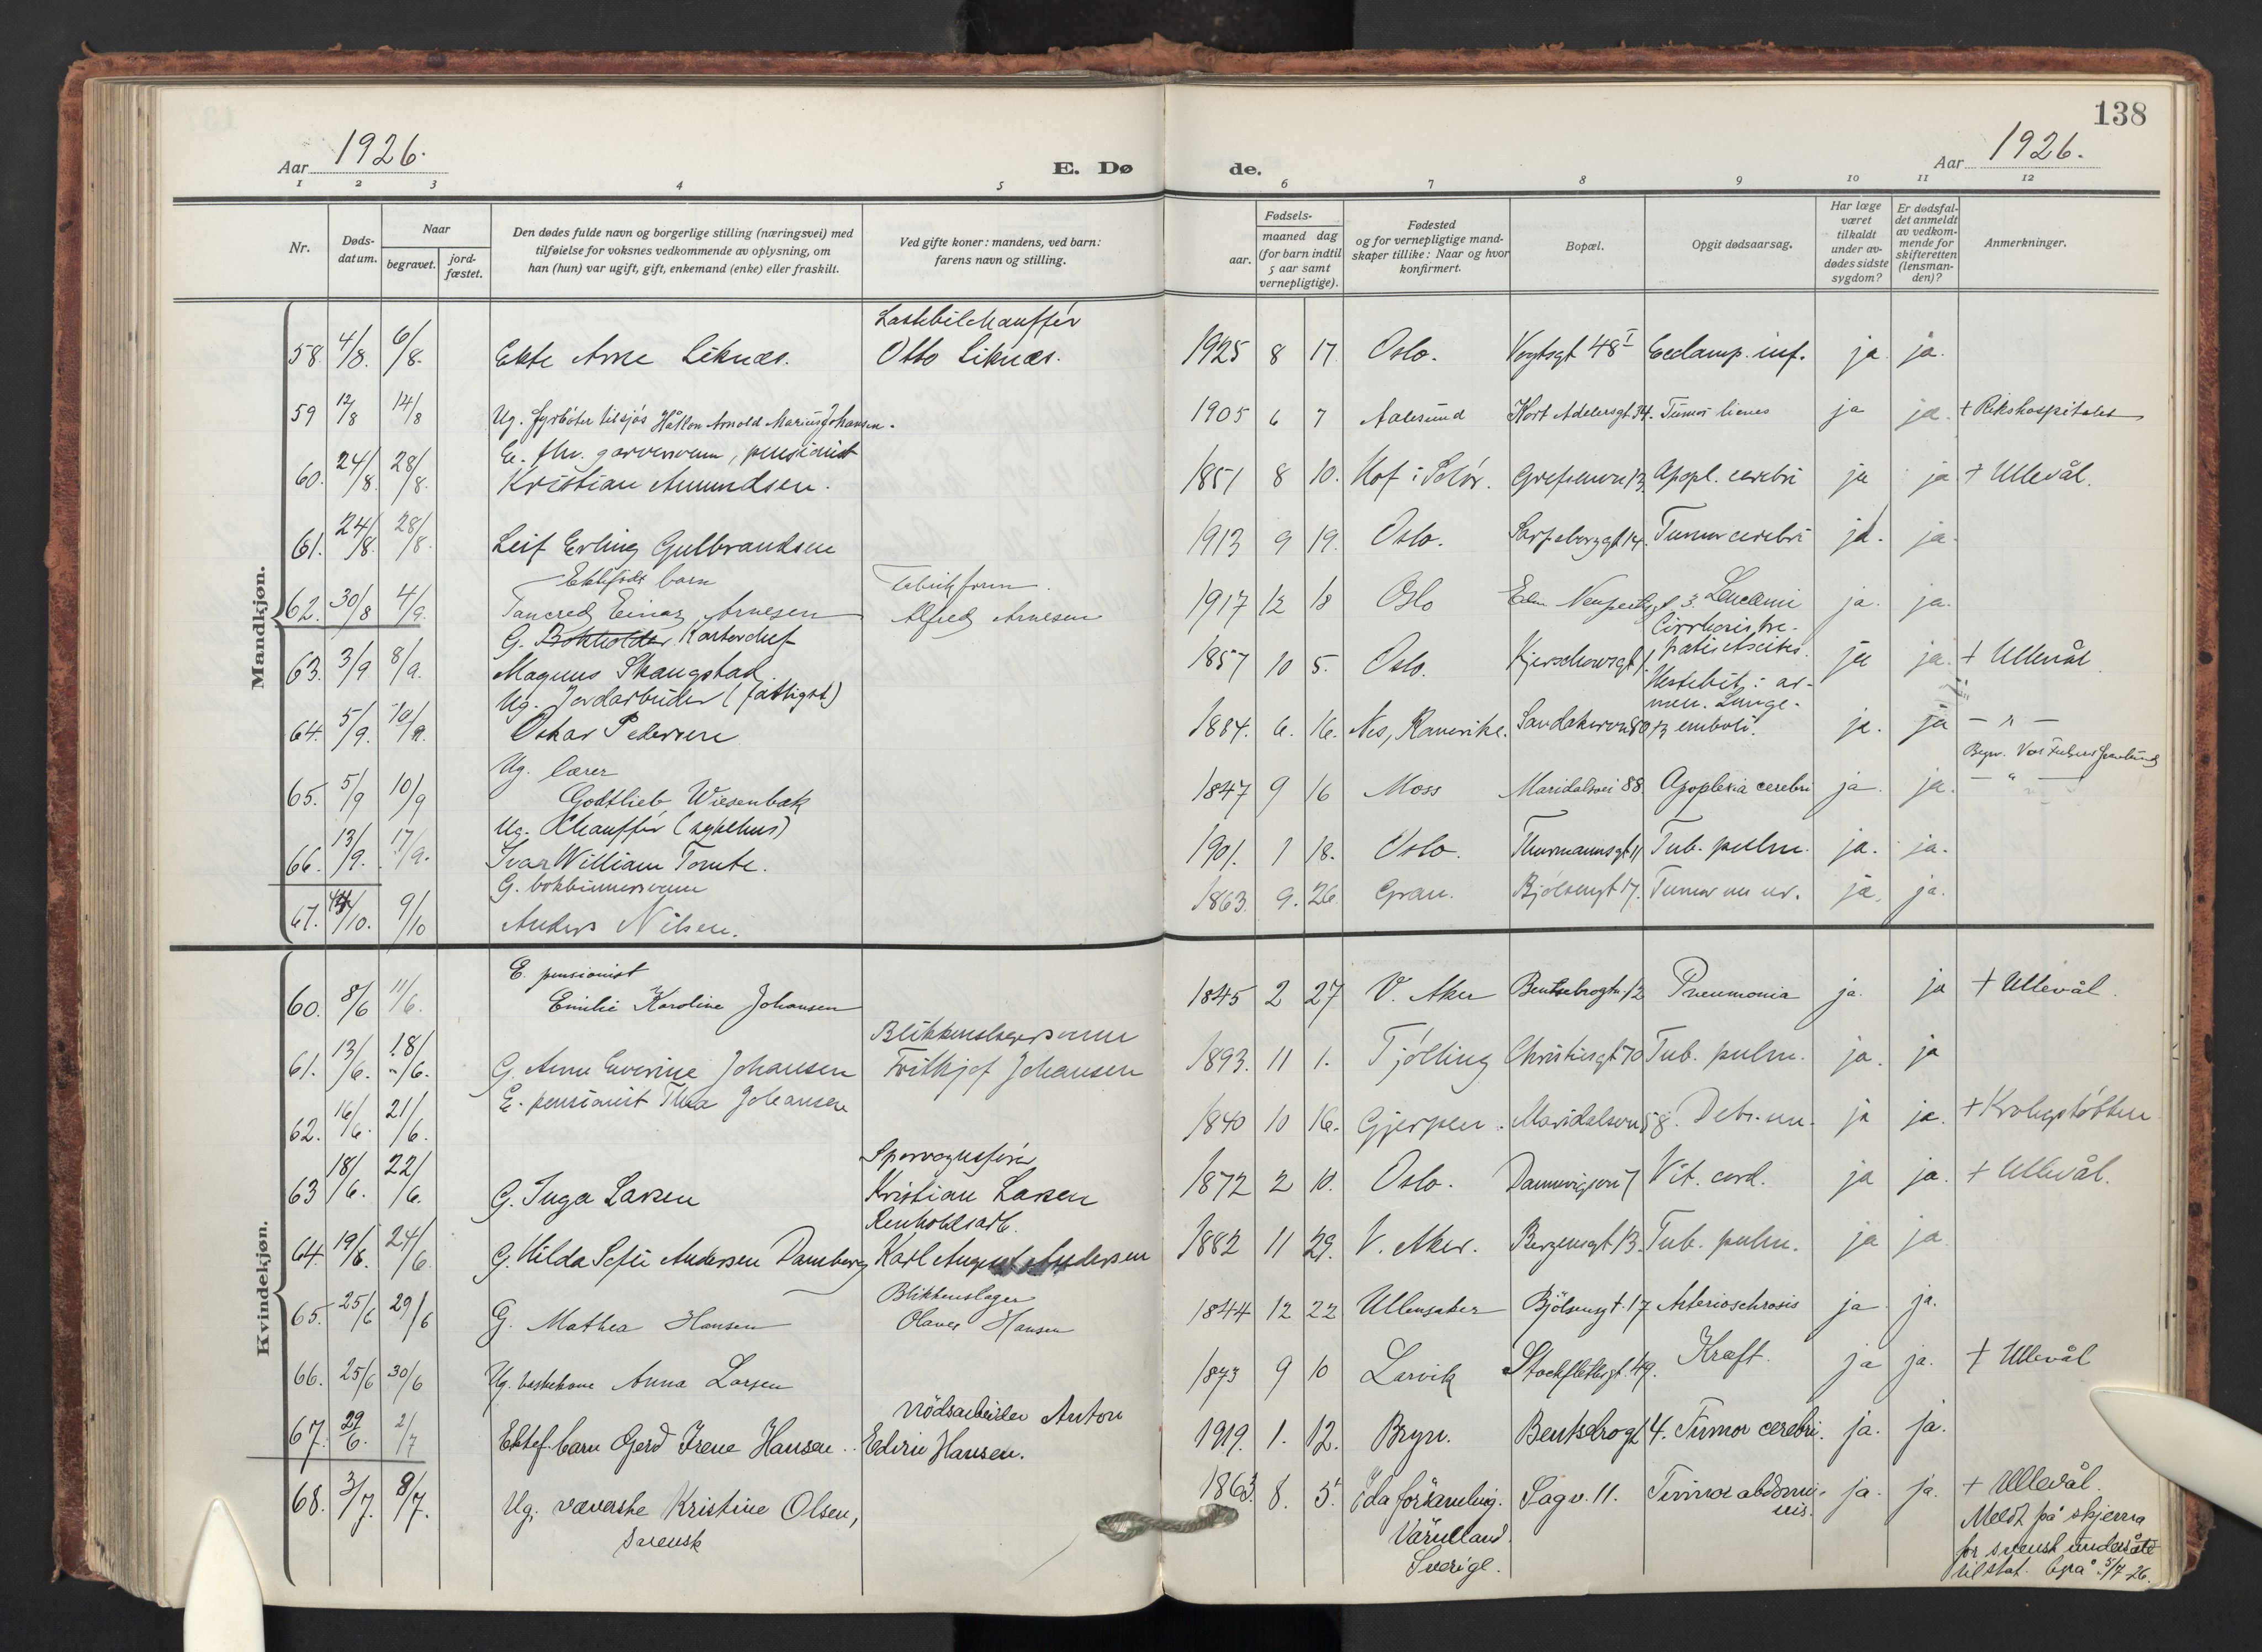 138
Aar 1926.
E. Dø
de.
Aar 1926.
1 2 3 4 5 6 7 8 9 10 11 12
Nr.
Døds-
datum.
Naar
begravet.
jord-
fæstet.
Den dødes fulde navn og borgerlige stilling (næringsvei) med
tilføielse for voksnes vedkommende av oplysning, om
han (hun) var ugift, gift, enkemand (enke) eller fraskilt.
Ved gifte koner: mandens, ved barn:
farens navn og stilling.
Fødsels-
aar.
maaned dag
(for barn indtil
5 aar samt
vernepligtige).
Fødested
og for vernepligtige mand-
skaper tillike: Naar og hvor
konfirmert.
Bopæl.
Opgit dødsaarsag.
Har læge
været
tilkaldt
under av-
dødes sidste
sygdom?
Er dødsfal-
det anmeldt
av vedkom-
mende for
skifteretten
(lensman-
den)?
Anmerkninger.
Mandkjøn.
Lastebilchauffør
58. 4/8. 6/8. Ekte Arne Liknæs. Otto Liknæs. 1925 8 17 Oslo. Vogtsgt 48 I Eclamp. inf. ja ja.
59 12/8 14/8 Ug. fyrbøter tilsjøs Håkon Arnold Marius Johansen. 1905 6 7 Aalesund Kort Adelersgt 34. Tumor lienes ja ja. + Rikshospitalet
E. fhv. garversvenn, pensionist
60. 24/8. 28/8. Kristian Amundsen. 1851 8 10. Hof i Solør. Grefsenvn 13 Apopl. cerebri ja ja + Ullevål.
61. 24/8. 28/8. Leif Erling Gulbrandsen 1913 9 19. Oslo. Sarpsborggt 14. Tumor cerebri ja. ja.
Ektefødt barn
62. 30/8 4/9. Tancred Einar Arnesen Alfred Arnesen 1917 12 18 Oslo Edm Neupertsgt. 3. Leucami ja. ja.
G. Bokholder Kontorchef
Cirrhosis he-
patis Ascites.
63. 3/9 8/9. Magnus Skaugstad. 1857 10 5. Oslo. Kjerschowsgt 1. ja ja. + Ullevål.
Ug. Jordarbeider (fattigst)
Hestebit i ar-
men. Lunge-
64. 5/9. 10/9. Oskar Pedersen 1884. 6. 16. Nes, Romerike. Sandakervn 80/13 emboli. ja. ja — „ —
Begr. Vor Frelsers Gravlund
Ug. lærer
65. 5/9 10/9 Godtlieb Wiesenbak 1847 9 16 Moss Maridalsvei 88 Apoplexia cerebri ja. ja. — „ —
Ug. Chauffør (sykehus)
66. 13/9. 17/9. Ivar William Tomte. 1901. 1 18. Oslo. Thurmannsgt 11 Tub. pulm. ja. ja.
G. bokbindersvenn
67. 10. 9/10 Anders Nilsen. 1863. 9. 26. Gran. Bjølsengt 17. Tumor ja. ja.
Kvindekjøn.
E. pensionist
60. 8/6 11/6. Emilie Karoline Johansen 1845 2 27 V. Aker Bentsebrogtn. 12 Pneumonia ja. ja + Ullevål.
Blikkenslagersvenn
61. 13/6. 18/6. G. Anne Eveline Johansen Frithjof Johansen 1893. 11 1. Tjølling Christiesgt 70 Tub. pulm. ja. ja
62. 16/6. 21/6. E. pensionist Thea Johansen 1840 10 16. Gjerpen. Maridalsvn 58. ja ja. + Krohgstøtten
Sporvognsfører
63 18/6. 22/6. G. Inga Larsen Kristian Larsen 1872 2 10. Oslo. Dannevigsvn 7 Vit. cord. ja ja. + Ullevål.
Renholdsarb.
64. 19/6. 24/6 G. Hilda Sofie Andersen Damberg Karl August Andersen 1882 11 29. V. Aker. Bergensgt 13. Tub. pulm. ja ja
Blikkenslager
65. 25/6 29/6 G. Mathea Hansen Olaves Hansen 1844 12 22 Ullensaker Bjølsengt. 17 Arteriosclerosis ja ja.
66. 25/6 30/6 Ug. vaskekone Anna Larsen 1873 9 10 Larvik Stockflethsgt. 49. Kræft. ja ja. + Ullevål
Nödsarbeider Anton
67. 29/6. 2/7 Ektef. barn Gerd Irene Hansen. Edvin Hansen. 1919. 1. 12. Bryn. Bentsebrogt 4. Tumor cerebri. ja. ja.
68. 3/7. 8/7. Ug. væverske Kristine Olsen, 1863. 8. 5. Eda församling. Sagv. 11. Tumor abdomi- ja. ja. + Ullevål.
svensk
Värmland.
nis.
Meldt på skjema
Sverige.
for svensk undersåtter
til stat. byrå 5/7 26.